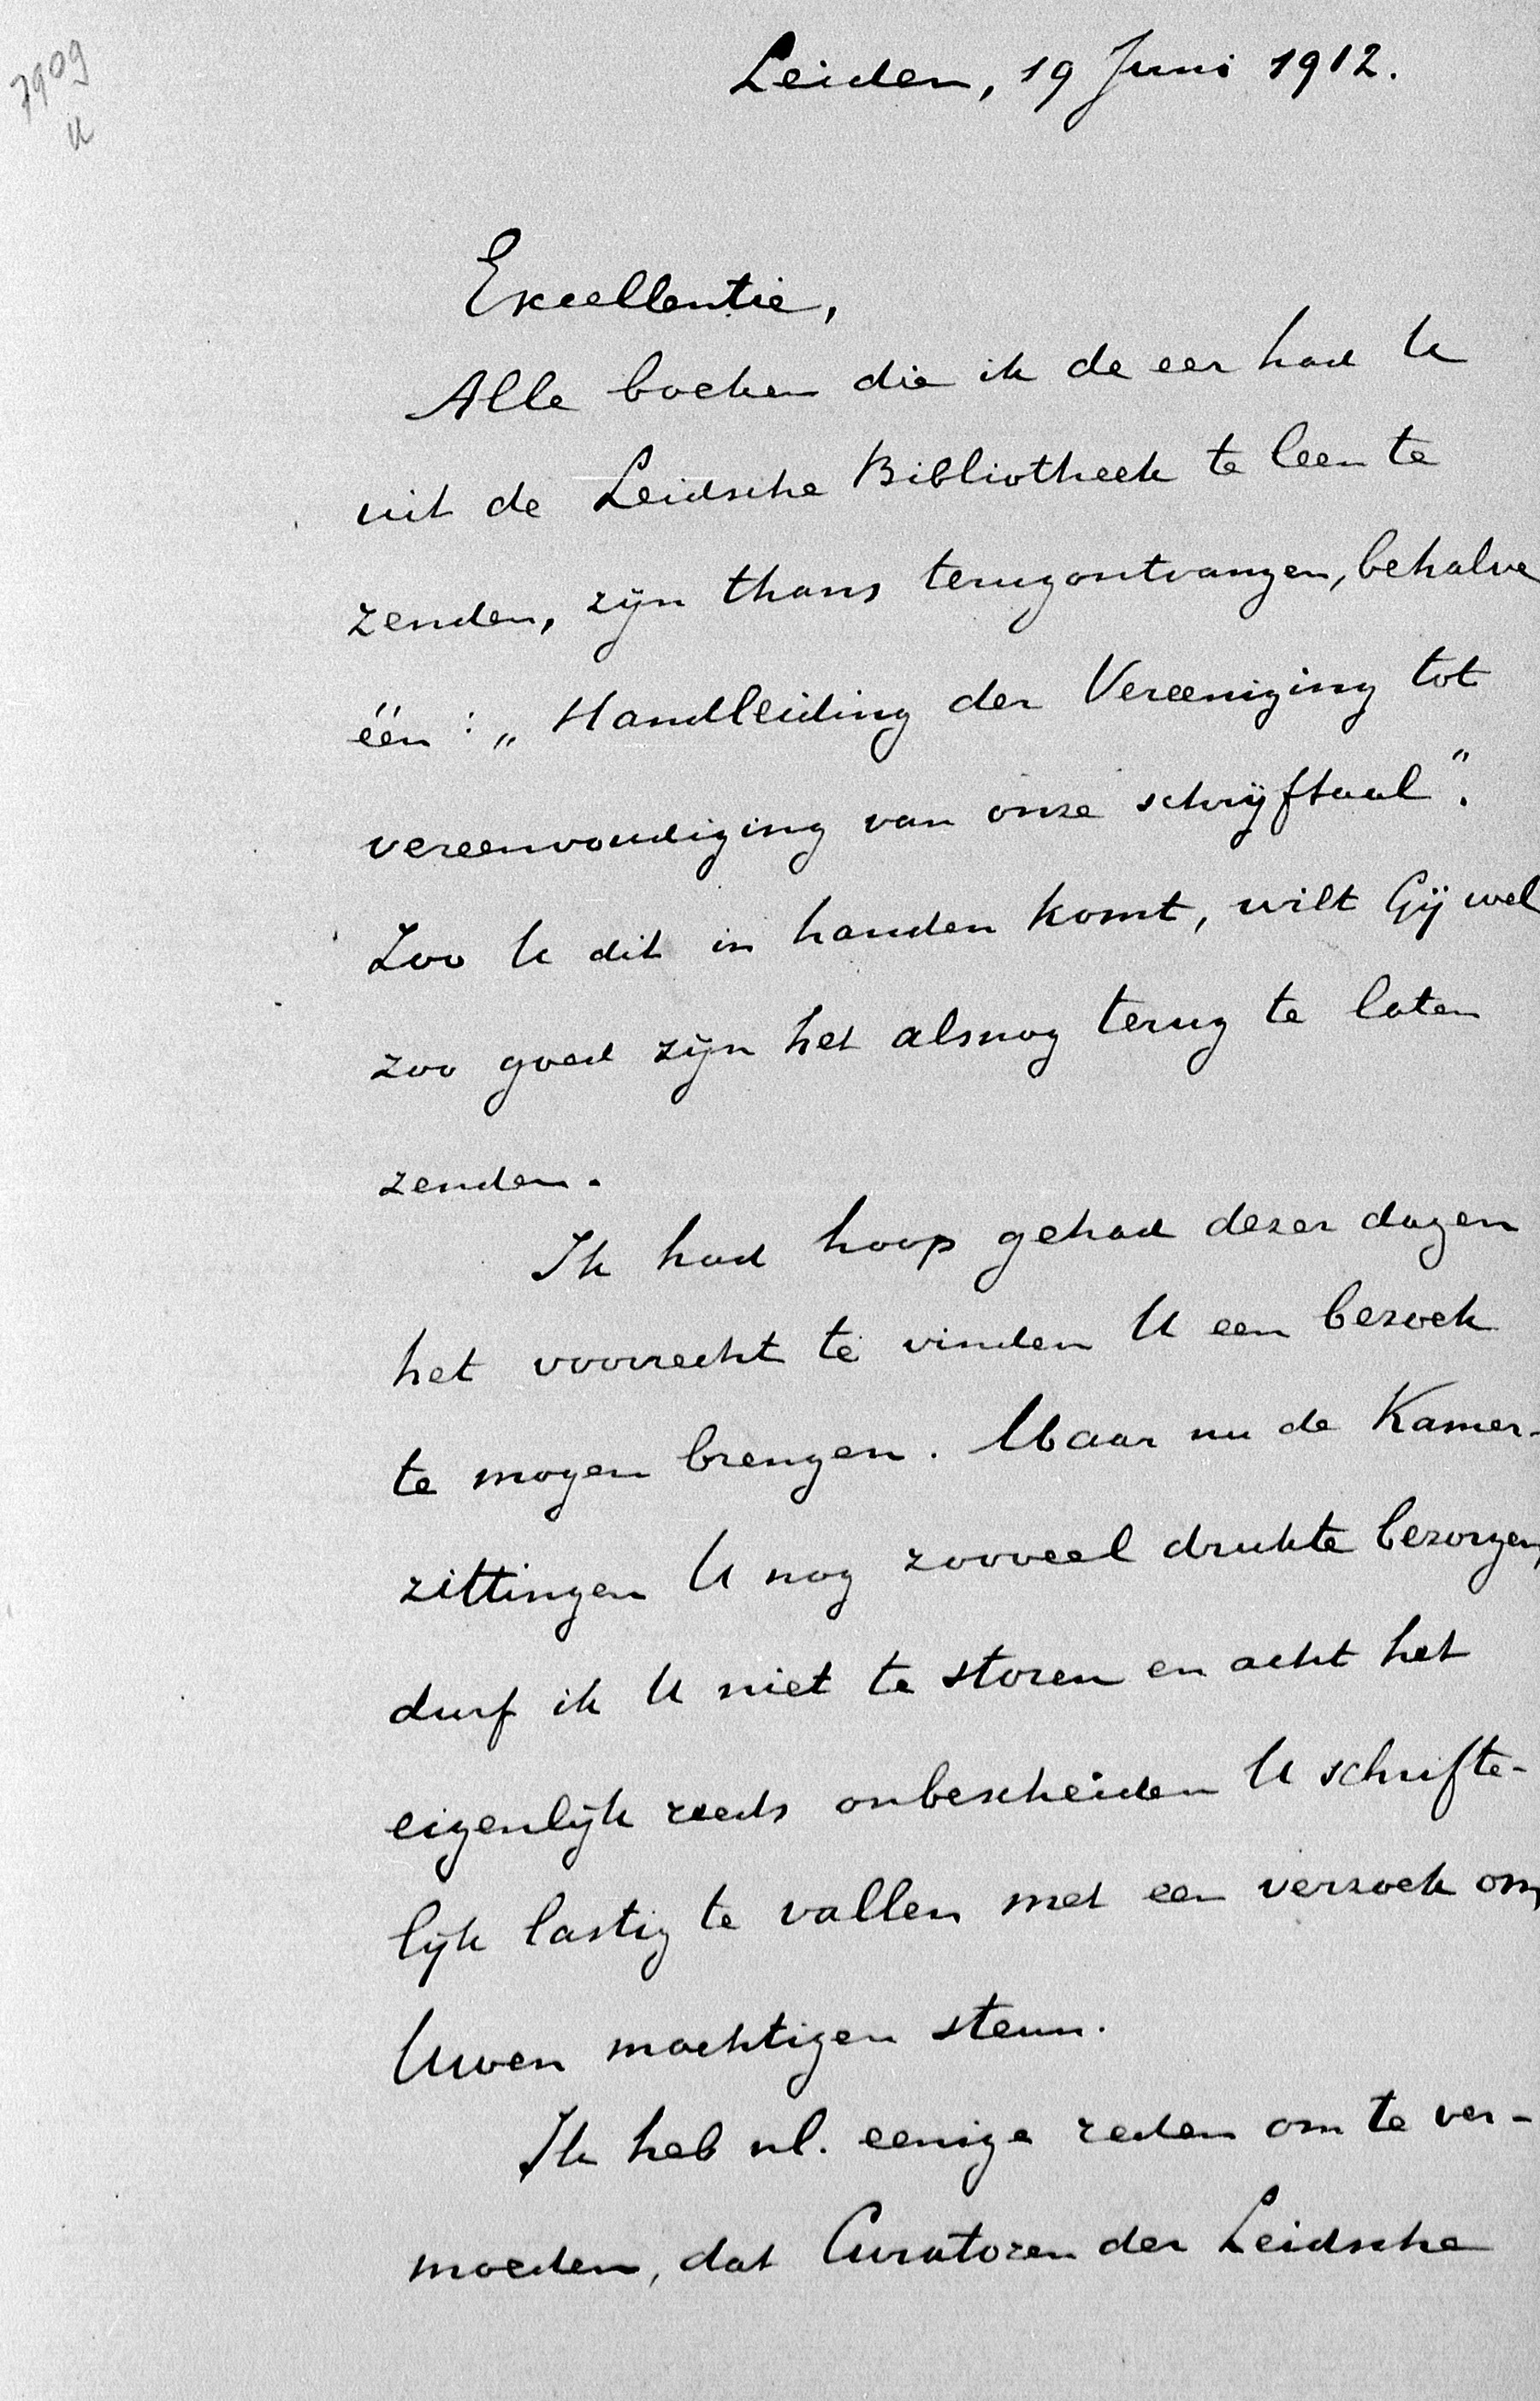 7909
Leiden, 19 Juni 1912.
Excellentie,
Alle boeken die ik de eer had U
uit de Leidsche Bibliotheek te leen te
zenden, zijn thans terugontvangen, behalve
één: „Handleiding der Vereeniging tot
vereenvoudiging van onze schrijftaal".
Zoo U dit in handen komt, wilt Gij wel
zoo goed zijn het alsnog terug te laten
zenden.
Ik had hoop gehad dezer dagen
het voorrecht te vinden U een bezoek
te mogen brengen. Maar nu de Kamer-
zittingen U nog zooveel drukte bezorgen,
durf ik U niet te storen en acht het
eigenlijk reeds onbescheiden U schrifte-
lijk lastig te vallen met een verzoek om
Uwen machtigen steun.
Ik heb nl. eenige reden om te ver-
moeden, dat Curatoren der Leidsche